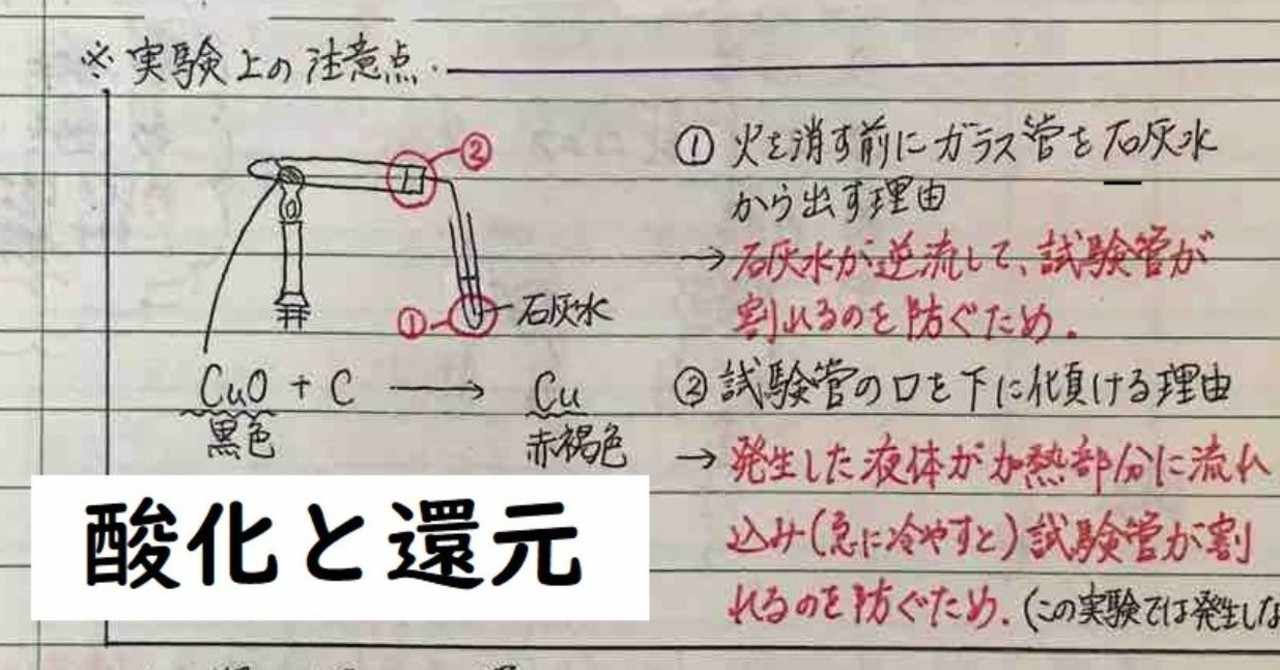 ※実験上の注意点.
②
①
石灰水
CuO + C → Cu
黒色
赤褐色
酸化と還元
① 火を消す前にガラス管を石灰水
から出す理由
→ 石灰水が逆流して、試験管が
割れるのを防ぐため.
② 試験管の口を下に傾ける理由
→ 発生した液体が加熱部分に流れ
込み(急に冷やすと)試験管が割
れるのを防ぐため. (この実験では発生しな